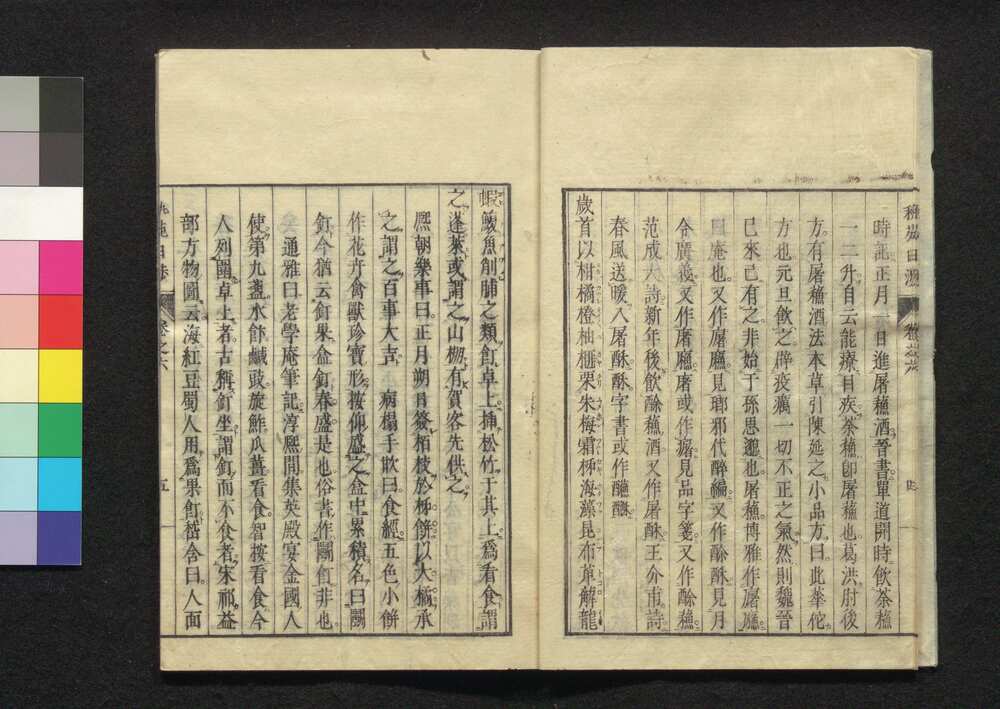 時記正月一日進屠蘓酒晉書單道開時飲荼蘓
一二升自云能療目疾荼蘓即屠蘓也葛洪肘後
方有屠蘓酒法本草引陳延之小品方曰此華佗
方也元旦飲之辟疫癘一切不正之氣然則魏晉
已來已有之非始于孫思邈也屠蘓博雅作廜㢝
庵也又作廜㢝見瑯邪代醉編又作酴酥見月
令廣義又作屠㢝屠或作廜見品字箋又作酴蘓
范成大詩新年後飲酴蘓酒又作屠酥王介甫詩
春風送暖入屠酥酥字書或作
歲首以柑橘橙柚榧栗朱梅霜柹海藻昆布萆薢龍
蝦鰒魚削脯之類飣卓上揷松竹于其上爲看食謂
之蓬萊或謂之山棚有賀客先供之
熈朝樂事曰正月朔日簽栢枝於柹餅以大橘承
之謂之百事大吉 病榻手欥曰食經五色小餅
作花卉禽獸珍寳形按仰盛之盒中累積名曰鬭
飣今猶云飣果盒飣春盛是也俗書作鬭飣非也
通雅曰老學庵筆記淳熈間集英殿宴金國人
使第九盞水飰鹹豉旋鮓瓜薑看食智按看食今
人列圍卓上者古稱飣坐謂飣而不食者宋祁益
部方物圖云海紅豆蜀人用爲果飣嵇含曰人面
卷之六
五